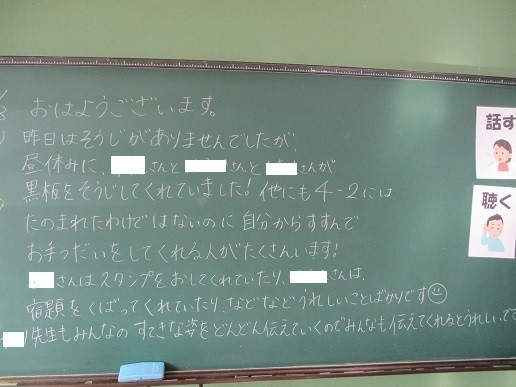 おはようございます。
昨日はそうじがありませんでしたが、
昼休みに、さんとさんとさんが
黒板をそうじしてくれていました!他にも4-2には
たのまれたわけではないのに自分からすすんで
お手つだいをしてくれる人がたくさんいます!
さんはスタンプをおしてくれていたり、さんは、
宿題をくばってくれていたり、などなどうれしいことばかりです
先生もみんなのすてきな姿をどんどん伝えていくのでみんなも伝えてくれるとうれしいです
話す
聴く